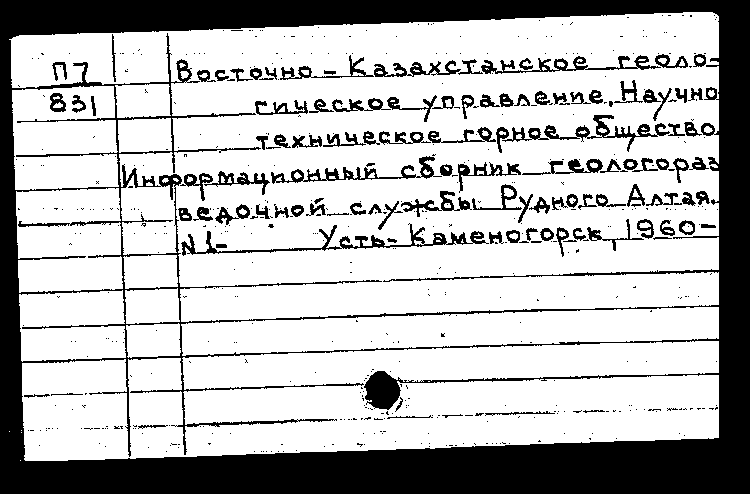 П7
831
Восточно-Казахстанское геоло-
гическое управление, Научно
техническое горное общество.
Информационный сборник геологораз
ведочной службы Рудного Алтая.
N 1- Усть-Каменогорск, 1960-